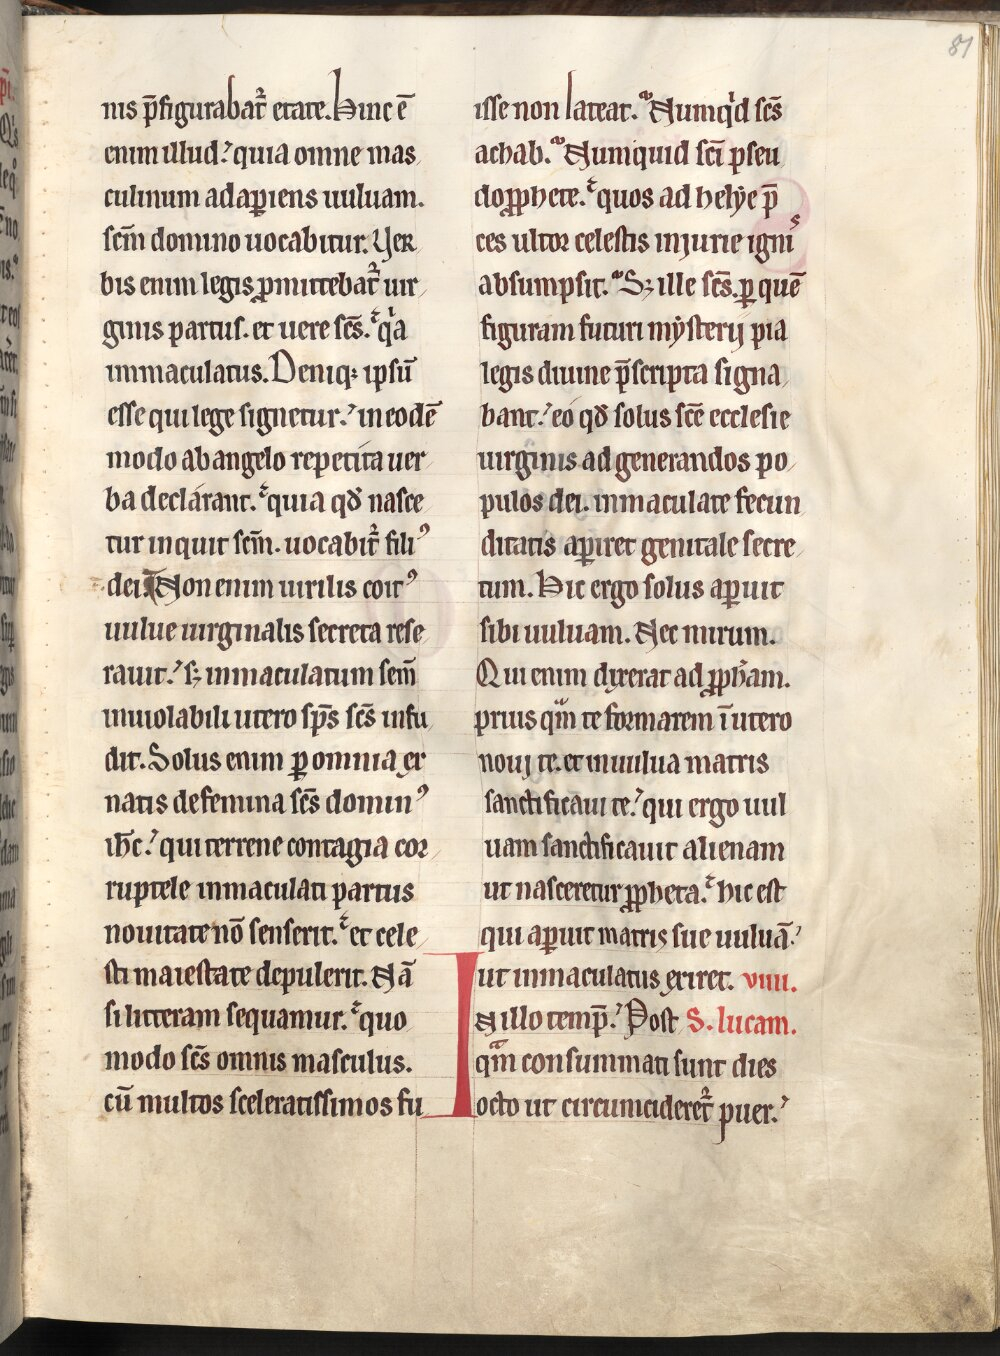 81
nis p̄figurabat᷑ etate. Hinc ē
enim illud. quia omne mas
culinum adaꝑiens uuluam.
sc̄m domino uocabitur. Ver
bis enim legis ꝓmittebat᷑ uir
ginis partus. et uere sc̄s. qͥa
inmaculatus. Deniqꝫ ipsū
esse qui lege signetur. in eodē
modo ab angelo repetita uer
ba declarant. quia qđ nasce
tur inquit sc̄m. uocabit᷑ filiꝰ
dei. Non enim uirilis coitꝰ
uulue uirginalis secreta rese
rauit. sꝫ inmaculatum sem̄
inuiolabili utero sp̄s sc̄s infu
dit. Solus enim ꝑ omnia ex
natis de femina sc̄s dominꝰ
ih̄c. qui terrene contagia cor
ruptele inmaculati partus
nouitate nō senserit. et cele
sti maiestate depulerit. Nā
si litteram sequamur. quo
modo sc̄s omnis masculus.
cū multos sceleratissimos fu
isse non lateat. Numqͥd sc̄s
achab. Numquid sc̄i pseu
do ꝓphete. quos ad helye p̄
ces ultor celestis iniurie ignis
absumpsit. Sꝫ ille sc̄s. ꝑ quē
figuram futuri mysterij pia
legis diuine p̄scripta signa
bant. eo qđ solus sc̄e ecclesie
uirginis ad generandos po
pulos dei. inmaculate fecun
ditatis aꝑiret genitale secre
tum. Hic ergo solus aꝑuit
sibi uuluam. Nec mirum.
Qui enim dixerat ad ꝓph̄am.
prius qͣm te formarem ī utero
noui te. et in uulua matris
sanctificaui te. qui ergo uul
uam sanctificauit alienam
ut nasceretur ꝓpheta. hic est
qui aꝑuit matris sue uuluā.
ut inmaculatus exiret. VIIII.
IN illo temp̄. Post S. lucam.
qͣm consummati sunt dies
octo ut circumcideret᷑ puer.